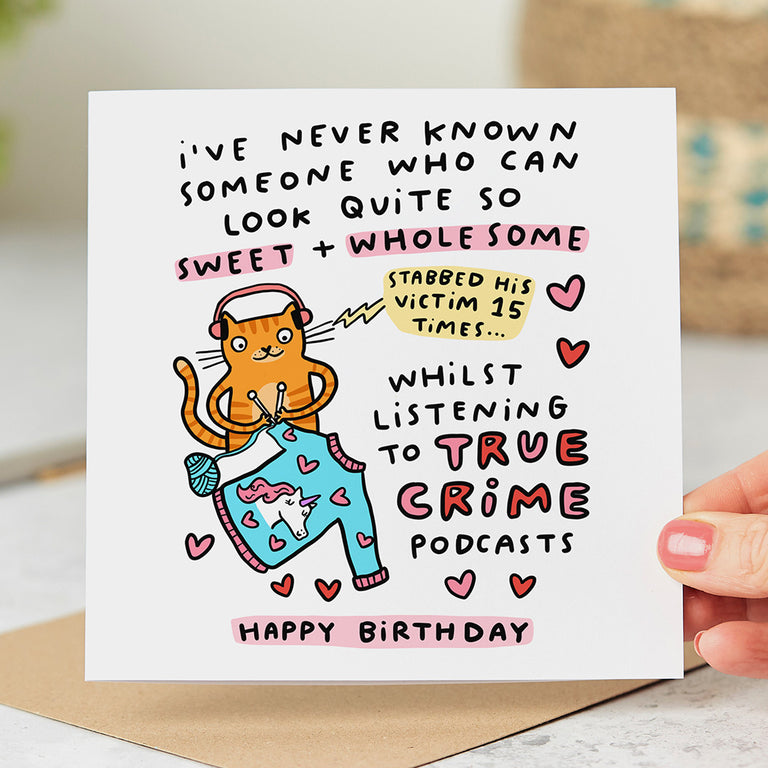 i'VE NEVER KNOWN
SOMEONE WHO CAN
LOOK QUiTE SO
SWEET + WHOLESOME
STABBED HiS
ViCTiM 15
TiMES...
WHiLST
LiSTENiNG
TO TRUE
CRiME
PODCASTS
HAPPY BiRTHDAY